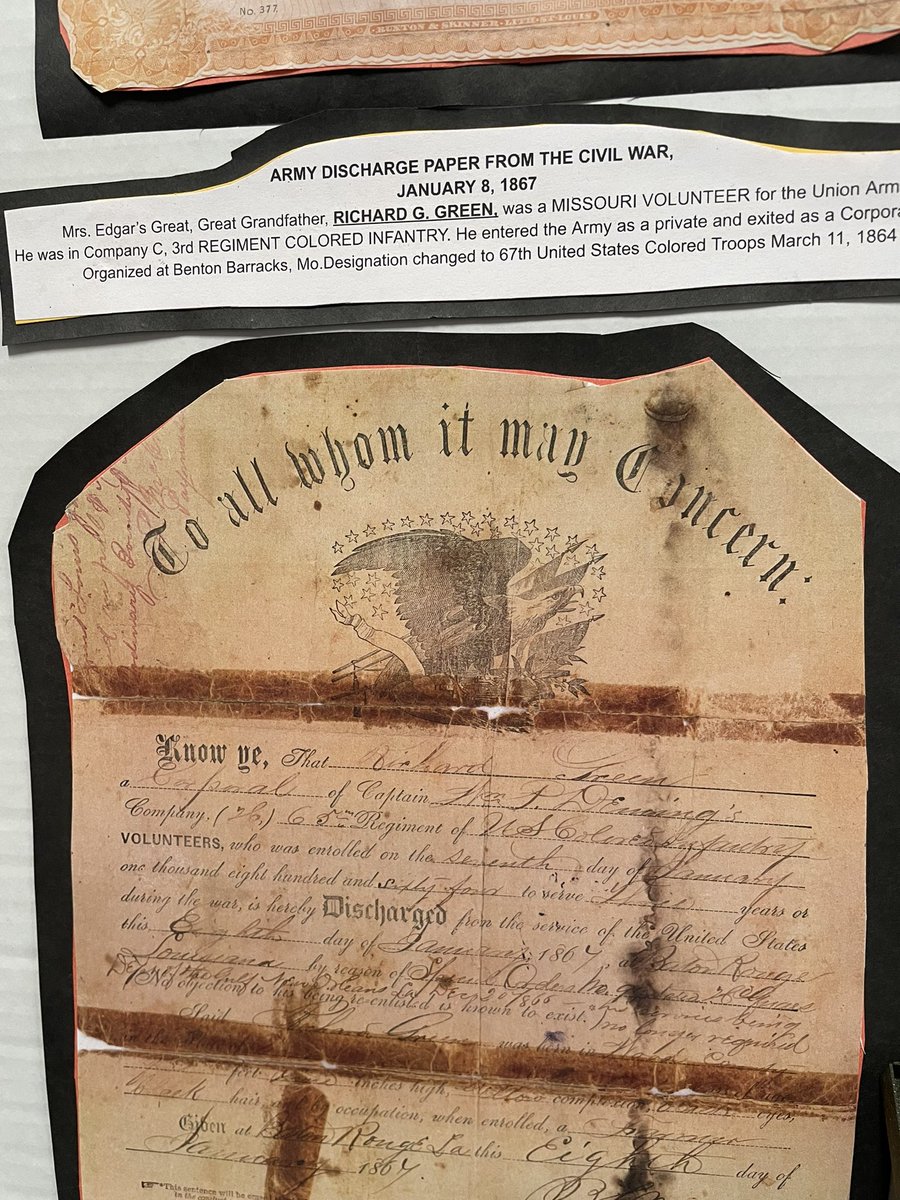 No. 377.
BUXTON & SKINNER - LITH - ST. LOUIS
ARMY DISCHARGE PAPER FROM THE CIVIL WAR,
JANUARY 8, 1867
Mrs. Edgar's Great, Great Grandfather, RICHARD G. GREEN, was a MISSOURI VOLUNTEER for the Union Arm
He was in Company C, 3rd REGIMENT COLORED INFANTRY. He entered the Army as a private and exited as a Corpora
Organized at Benton Barracks, Mo.Designation changed to 67th United States Colored Troops March 11, 1864
To all whom it may Concern:
Know ye, That Richard Green
a Corporal of Captain Wm P. Deming's
Company, (C,) 65th Regiment of U S Colored Infantry
VOLUNTEERS, who was enrolled on the seventh day of January
one thousand eight hundred and sixty four to serve three years or
during the war, is hereby Discharged from the service of the United States
this Eighth day of January, 1867, at Baton Rouge
Louisiana by reason of Special Orders No.
New Orleans La Dec 1866 services being
(No objection to his being re-enlisted is known to exist.) no longer required
Said Green was born in
in the State of
feet inches high, complexion, eyes,
Black hair and by occupation, when enrolled, a
Given at Baton Rouge La this Eighth day of
January 1867
*This sentence will be